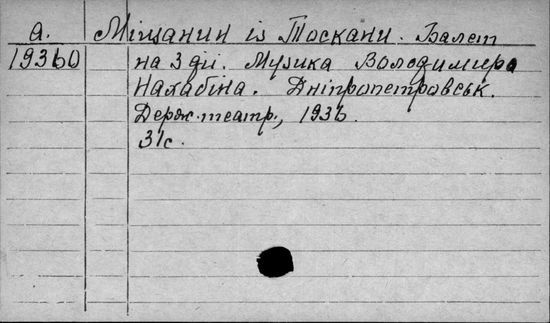 а. Міщанин із Тоскани. Балет
1936 0 на 3 дії. Музика Володимира
Нахабіна. Дніпропетровськ.
Держ. театр., 1936.
31с.